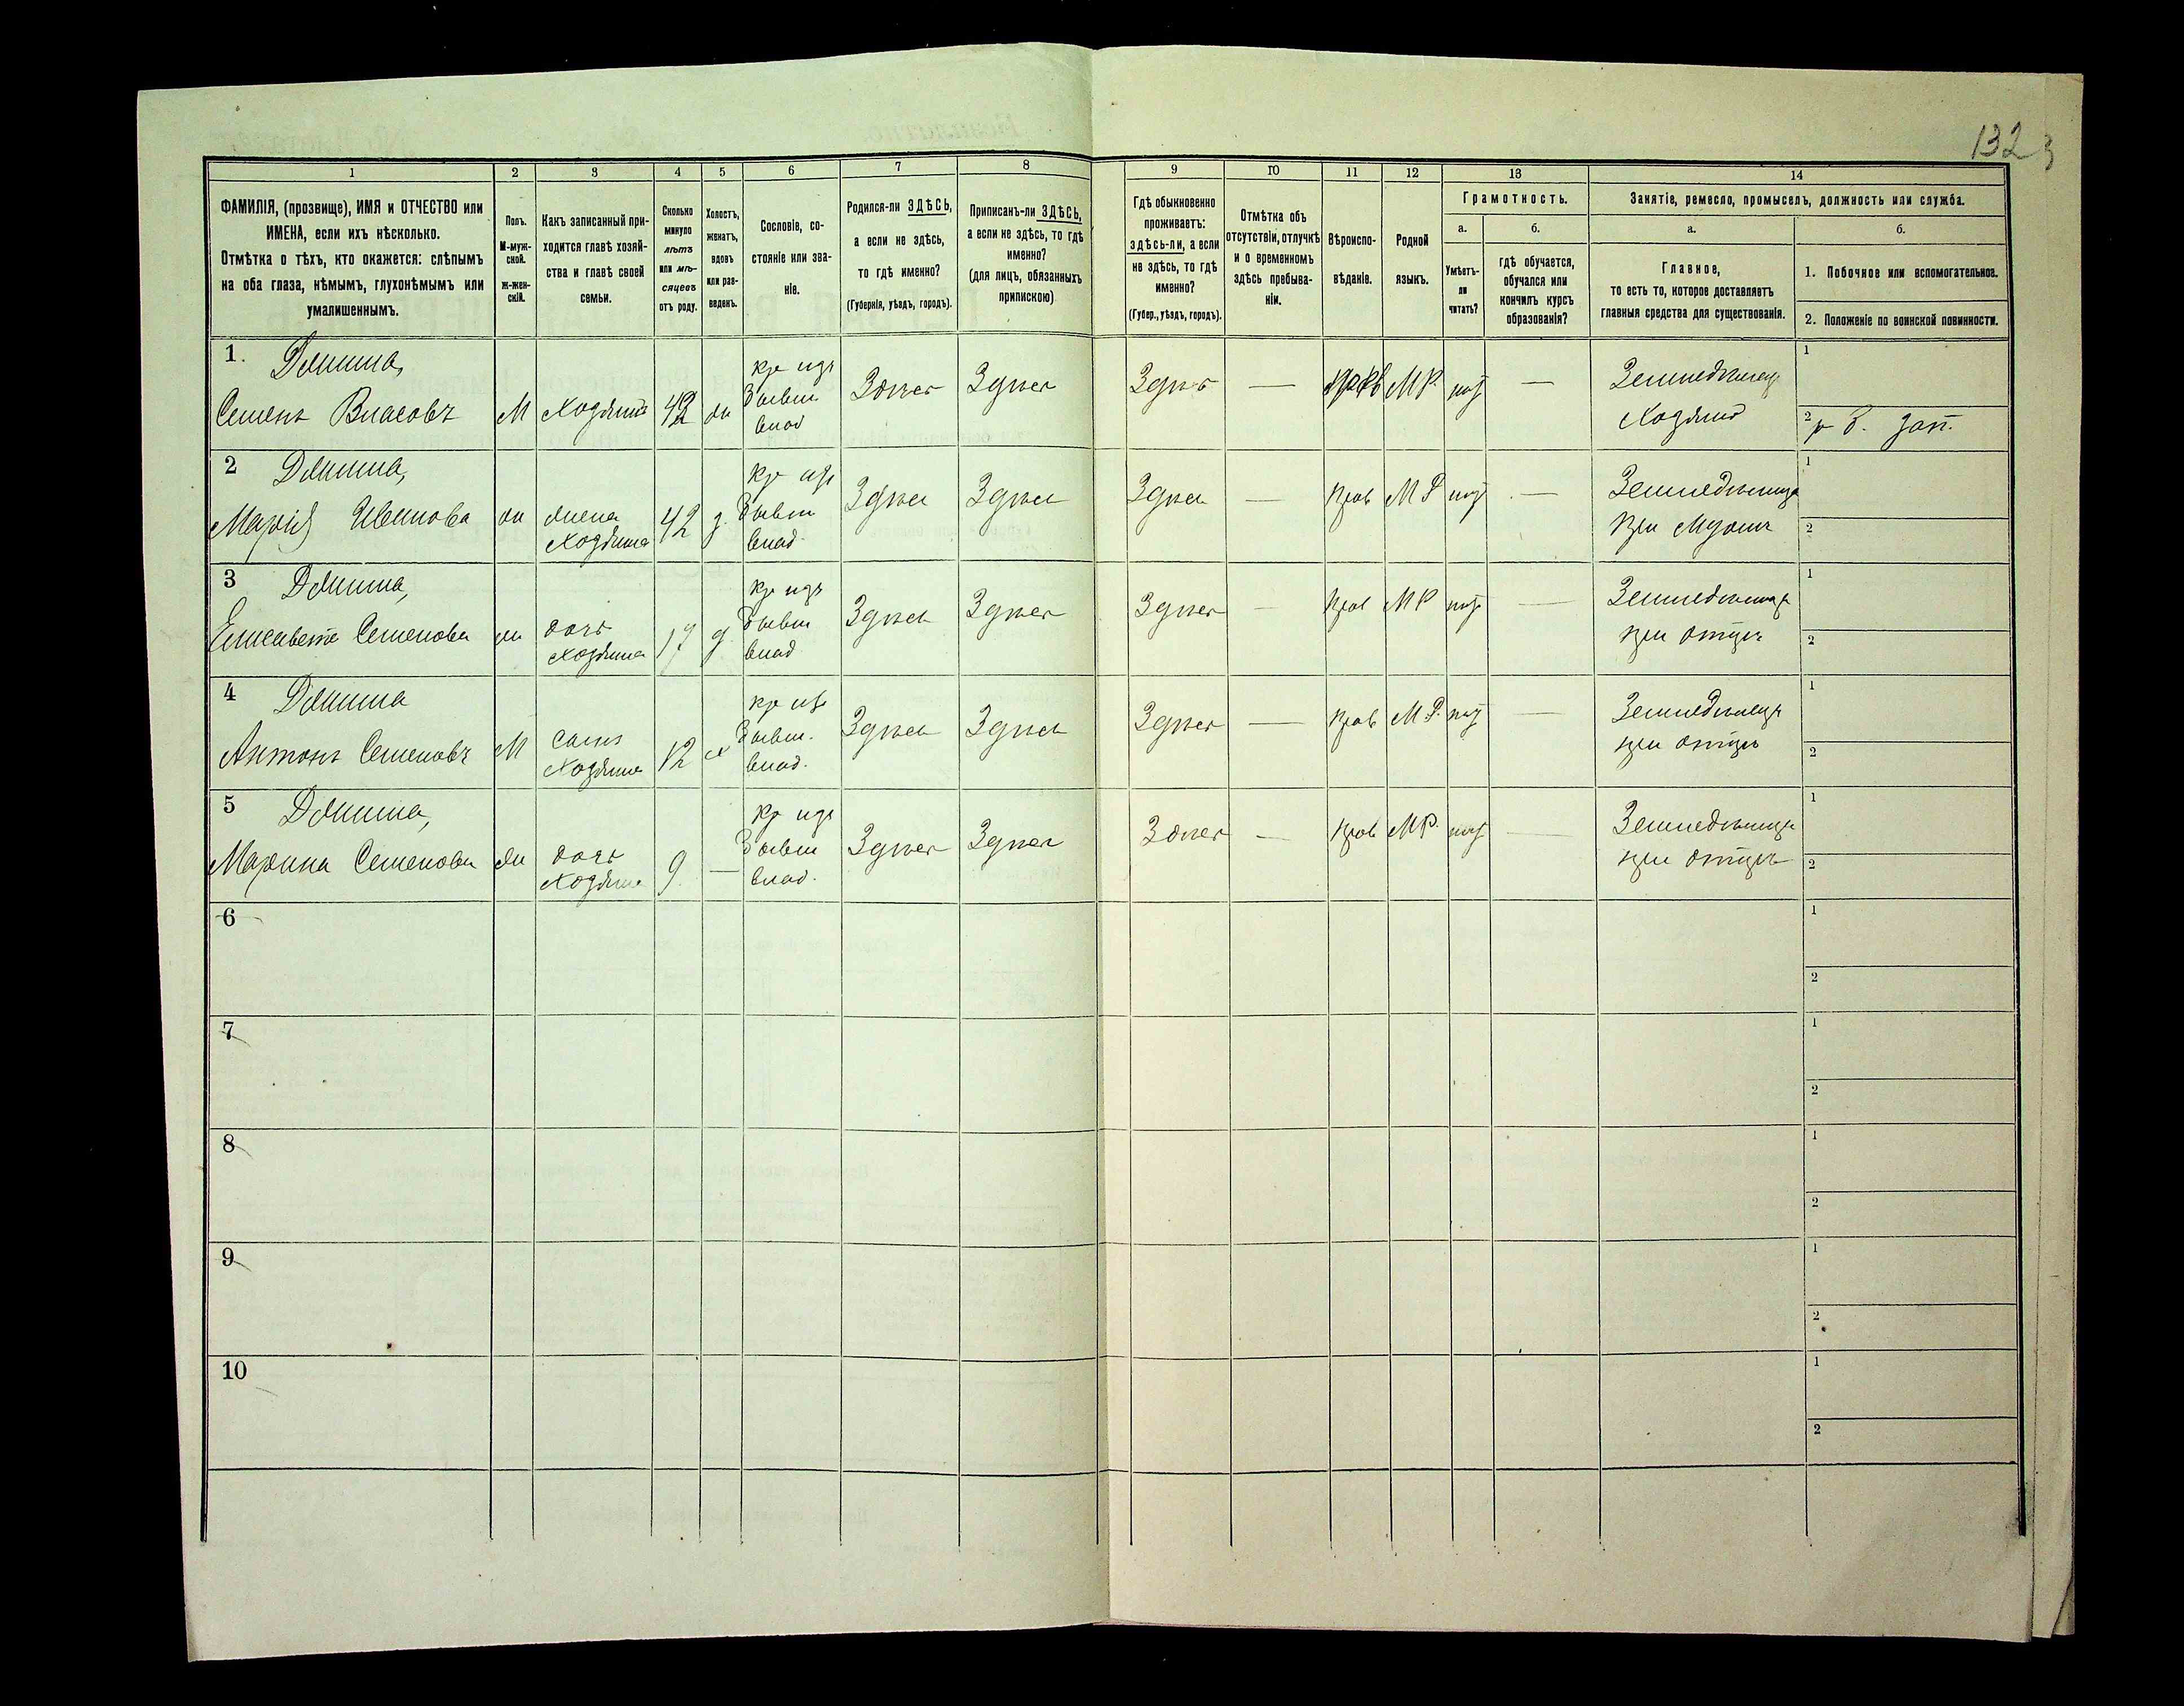 132
1 2 3 4 5 6 7 8 9 10 11 12 13 14
ФАМИЛІЯ, (прозвище), ИМЯ и ОТЧЕСТВО или
ИМЕНА, если ихъ нѣсколько.
Отмѣтка о тѣхъ, кто окажется: слѣпымъ
на оба глаза, нѣмымъ, глухонѣмымъ или
умалишеннымъ.
Полъ.
М-муж-
ской.
Ж-жен-
скій.
Какъ записанный при-
ходится главѣ хозяй-
ства и главѣ своей
семьи.
Сколько
минуло
лѣтъ
или мѣ-
сяцевъ
отъ роду.
Холостъ,
женатъ,
вдовъ
или раз-
веденъ.
Сословіе, со-
стояніе или зва-
ніе.
Родился-ли ЗДѢСЬ,
а если не здѣсь,
то гдѣ именно?
(Губернія, уѣздъ, городъ).
Приписанъ-ли ЗДѢСЬ,
а если не здѣсь, то гдѣ
именно?
(для лицъ, обязанныхъ
припискою)
Гдѣ обыкновенно
проживаетъ:
здѣсь-ли, а если
не здѣсь, то гдѣ
именно?
(Губер., уѣздъ, городъ).
Отмѣтка объ
отсутствіи, отлучкѣ
и о временномъ
здѣсь пребыва-
ніи.
Вѣроиспо-
вѣданіе.
Родной
языкъ.
Грамотность.
а.
Умѣетъ-
ли
читать?
б.
гдѣ обучается,
обучался или
кончилъ курсъ
образованія?
Занятіе, ремесло, промыселъ, должность или служба.
а.
Главное,
то есть то, которое доставляетъ
главныя средства для существованія.
б.
1. Побочное или вспомогательное.
2. Положеніе по воинской повинности.
1.
Семенъ Власовъ
М
Хозяинъ
42
ж
кр изъ
бывш
влад
Здѣсь
Здѣсь
Здѣсь
—
Прав
М Р.
—
Земледѣлецъ
Хозяинъ
1
2
2
Марія Иванова
ж
жена
Хозяина
42
з.
кр изъ
бывш
влад.
Здѣсь
Здѣсь
Здѣсь
—
Прав
М Р
—
Земледѣлица
при Мужѣ
1
2
3
Елисавета Семенова
ж
дочь
Хозяина
17
кр изъ
бывш
влад
Здѣсь
Здѣсь
Здѣсь
—
Прав
М Р
—
Земледѣлица
при отцѣ
1
2
4
Антонъ Семеновъ
М
сынъ
Хозяина
12
х
кр изъ
бывш.
влад.
Здѣсь
Здѣсь
Здѣсь
—
Прав
М Р.
—
Земледѣлецъ
при отцѣ
1
2
5
Марина Семенова
ж
дочь
Хозяина
9
—
кр изъ
бывш
влад.
Здѣсь
Здѣсь
Здѣсь
—
Прав
М Р.
—
Земледѣлица
при отцѣ
1
2
6
1
2
7
1
2
8
1
2
9
1
2
10
1
2